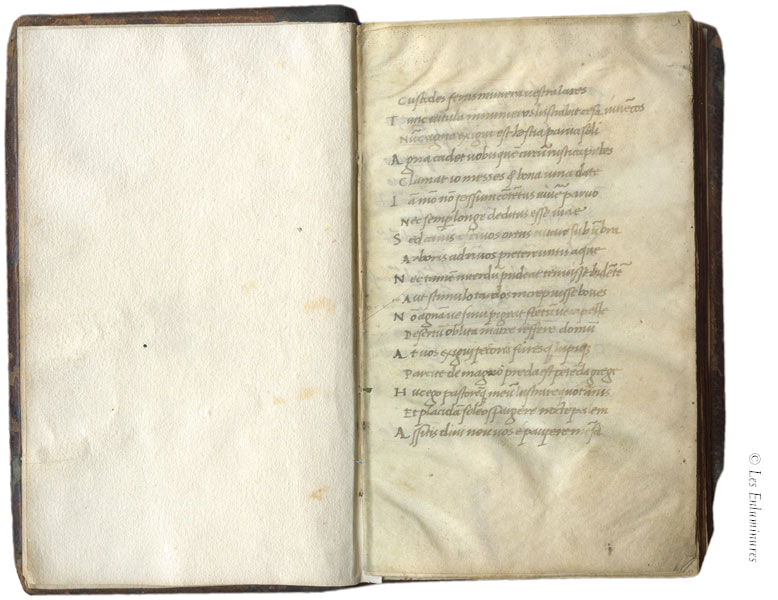 Custodes fertis munera vestra lares
Tunc vitula innumeros lustrabat cesa iuvẽcos
Nũc agna exigui est hostia parva soli
Agna cadet vobis quẽ circũ rustica pubes
Clamat io messes & bona vina date
Iam mõ nõ possum cõtẽtus vivere parvo
Nec semp longe deditus esse viae
Sed canis estivos ortus vitare sub ũbra
Arboris ad rivos pretereuntis aque
Nec tamẽ interdũ pudeat tenuisse bidẽtẽ
Aut stimulo tardos increpuisse boves
Nõ agnãve sinu pigeat fetũve capelle
Desertũ oblita matre refferre domũ
At vos exigui pecoris furesq lupiq
Parcite de magno preda est petẽda grege
Huc ego pastoreq meũ lustrare quotannis
Et placidã soleo spargere
Assitis divi neu vos e paupere mẽsa
© Les Enluminures